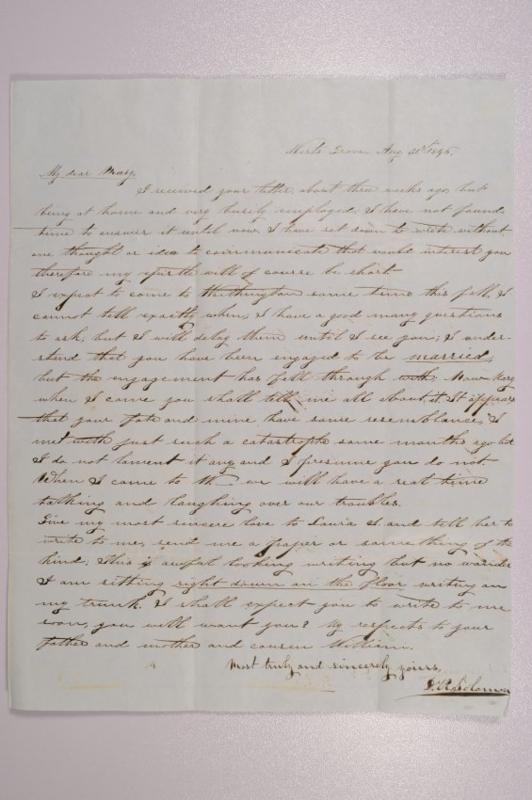 Aug 1846.
My dear Mary,
I received your letter about three weeks ago, but
being at home and very busily employed, I have not found
time to answer it until now. I have sat down to write without
one thought or idea to communicate that would interest you
therefore my epistle will of course be short.
I expect to come to some time this fall, I
cannot tell exactly when, I have a good many questions
to ask, but I will delay them until I see you; I under-
stand that you have been engaged to be married,
but the engagement has fell through with. Now Mary
when I come you shall tell me all about it. It appears
that your fate and mine, have some resemblance, I
met with just such a catastrophe some months ago but
I do not lament it any and I presume you do not.
When I come to we will have a real time
talking and laughing over our troubles.
Give my most sincere love to Laura S. and tell her to
write to me, send me a paper or something of the
kind; This is awful looking writing but no wonder
I am sitting right down on the floor writing on
my trunk. I shall expect you to write to me
soon, you will want you? My respects to your
father and mother and cousin William.
Most truly and sincerely yours,